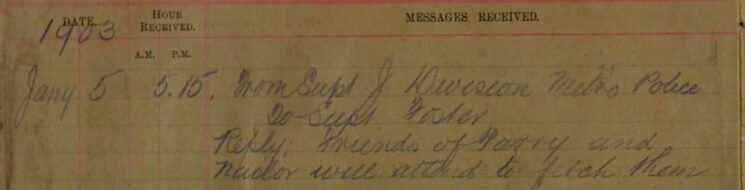 DATE. HOUR RECEIVED. MESSAGES RECEIVED.
1903
A.M. P.M.
Jany 5 5.15. From Supt J Division Metro Police
To Supt Foster
Reply. Friends of Parry and
will attend to fetch them